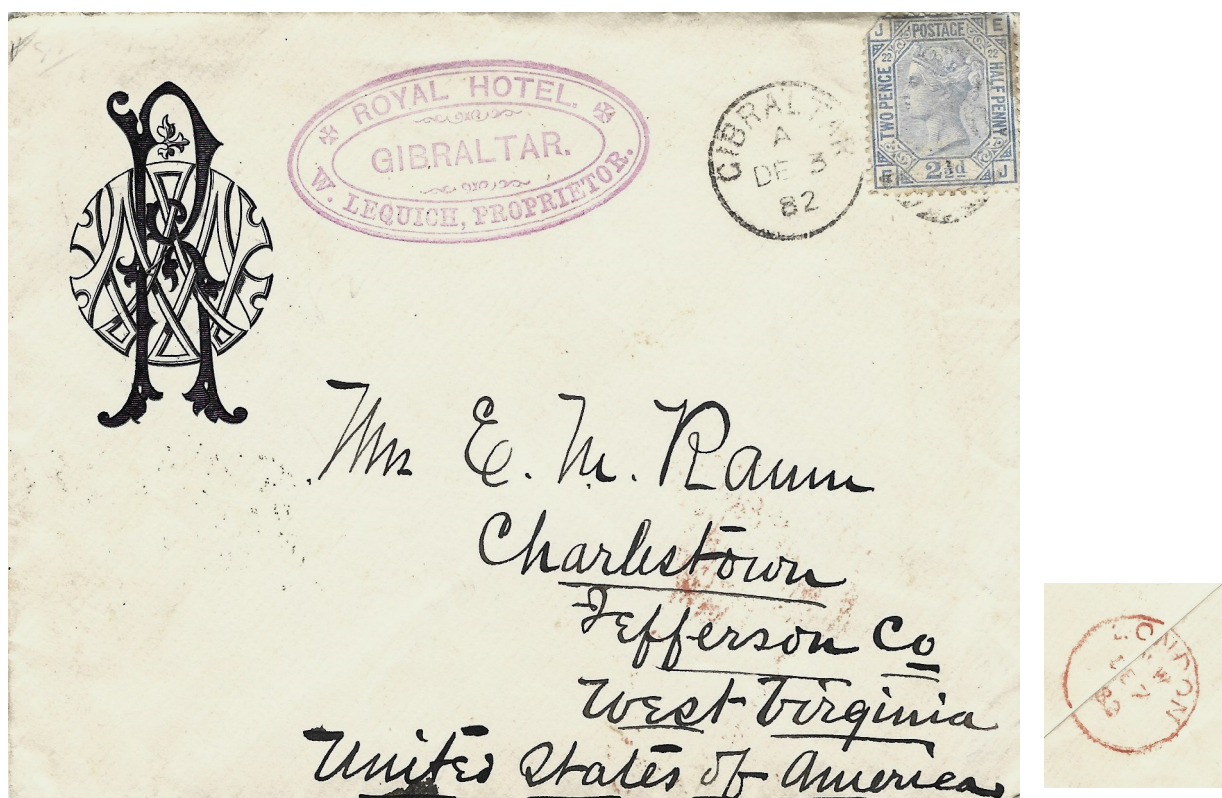 ROYAL HOTEL.
GIBRALTAR.
W. LEQUICH, PROPRIETOR.
GIBRALTAR
A
DE 3
82
J POSTAGE E
TWO PENCE
HALF PENNY
E 2½d J
E. M. Ramm
Charlestown
Jefferson Co
West Virginia
United States of America
LONDON
82